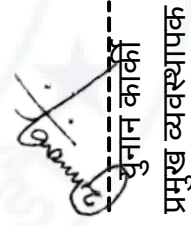 युनान कार्की
प्रमुख व्यवस्थापक